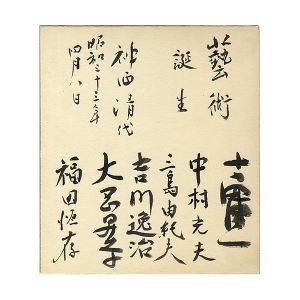 藝術
誕生
神西清代
昭和三十三年
四月八日
中村光夫
三島由紀夫
吉川逸治
大岡昇平
福田恆存